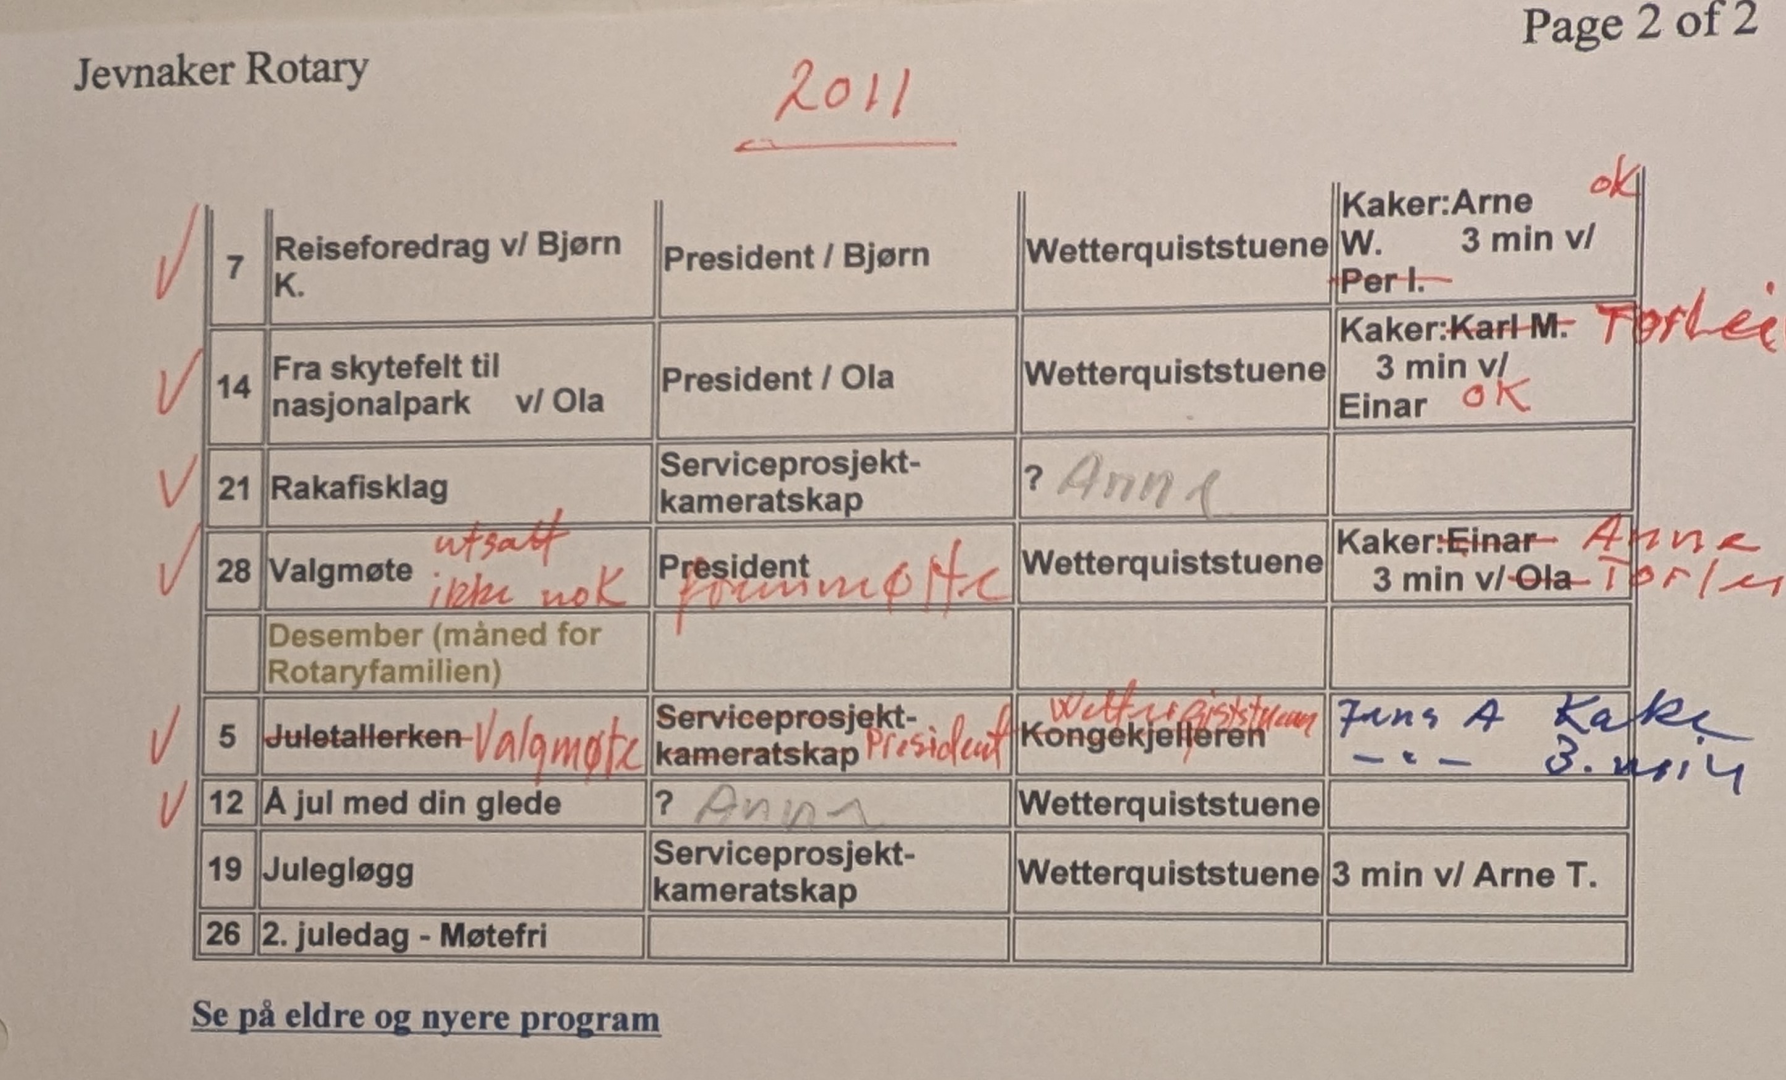 Page 2 of 2
Jevnaker Rotary
2011
ok
7 Reiseforedrag v/ Bjørn K. President / Bjørn Wetterquiststuene Kaker:Arne W. 3 min v/ Per I.
14 Fra skytefelt til nasjonalpark v/ Ola President / Ola Wetterquiststuene Kaker:Karl M. 3 min v/ Einar OK
21 Rakafisklag Serviceprosjekt-kameratskap ? Anne
28 Valgmøte utsatt ikke nok President Wetterquiststuene Kaker:Einar Anne 3 min v/ Ola
Desember (måned for Rotaryfamilien)
5 Juletallerken Valgmøte Serviceprosjekt-kameratskap President Kongekjelleren Jens A Kake
3. min
12 Å jul med din glede ? Anne Wetterquiststuene
19 Julegløgg Serviceprosjekt-kameratskap Wetterquiststuene 3 min v/ Arne T.
26 2. juledag - Møtefri
Se på eldre og nyere program